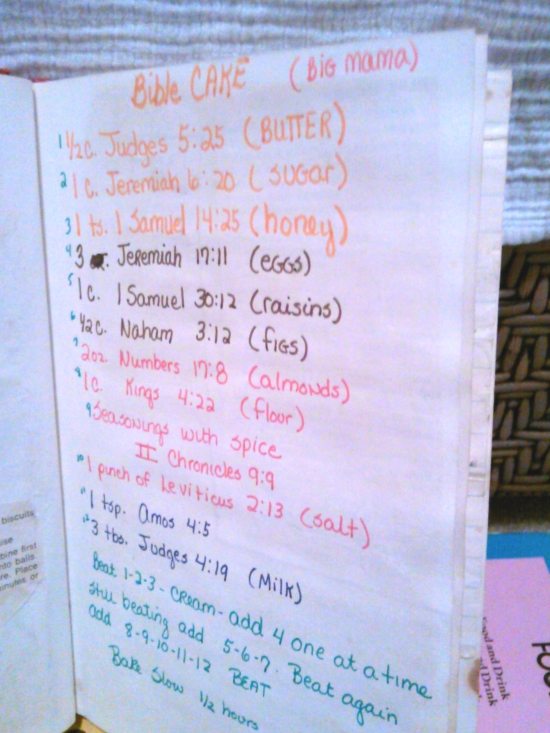 Bible CAKE (Big mama)
1 1/2 c. Judges 5:25 (BUTTER)
2 1 c. Jeremiah 6:20 (SUGar)
3 1 ts. 1 Samuel 14:25 (honey)
4 3 Jeremiah 17:11 (eGGs)
5 1c. 1 Samuel 30:12 (raisins)
6 1/2c. Naham 3:12 (fiGs)
7 2oz. Numbers 17:8 (almonds)
8 1c. Kings 4:22 (flour)
9 Seasonings with spice
II Chronicles 9:9
10 1 pinch of Leviticus 2:13 (salt)
11 1 tsp. Amos 4:5
12 3 tbs. Judges 4:19 (Milk)
Beat 1-2-3- CReam- add 4 one at a time
still beating add 5-6-7. Beat again
add 8-9-10-11-12 BEAT
Bake Slow 1 1/2 hours
biscuits
bine first
nto balls.
re. Place
inutes or
Food and Drink
d Drink